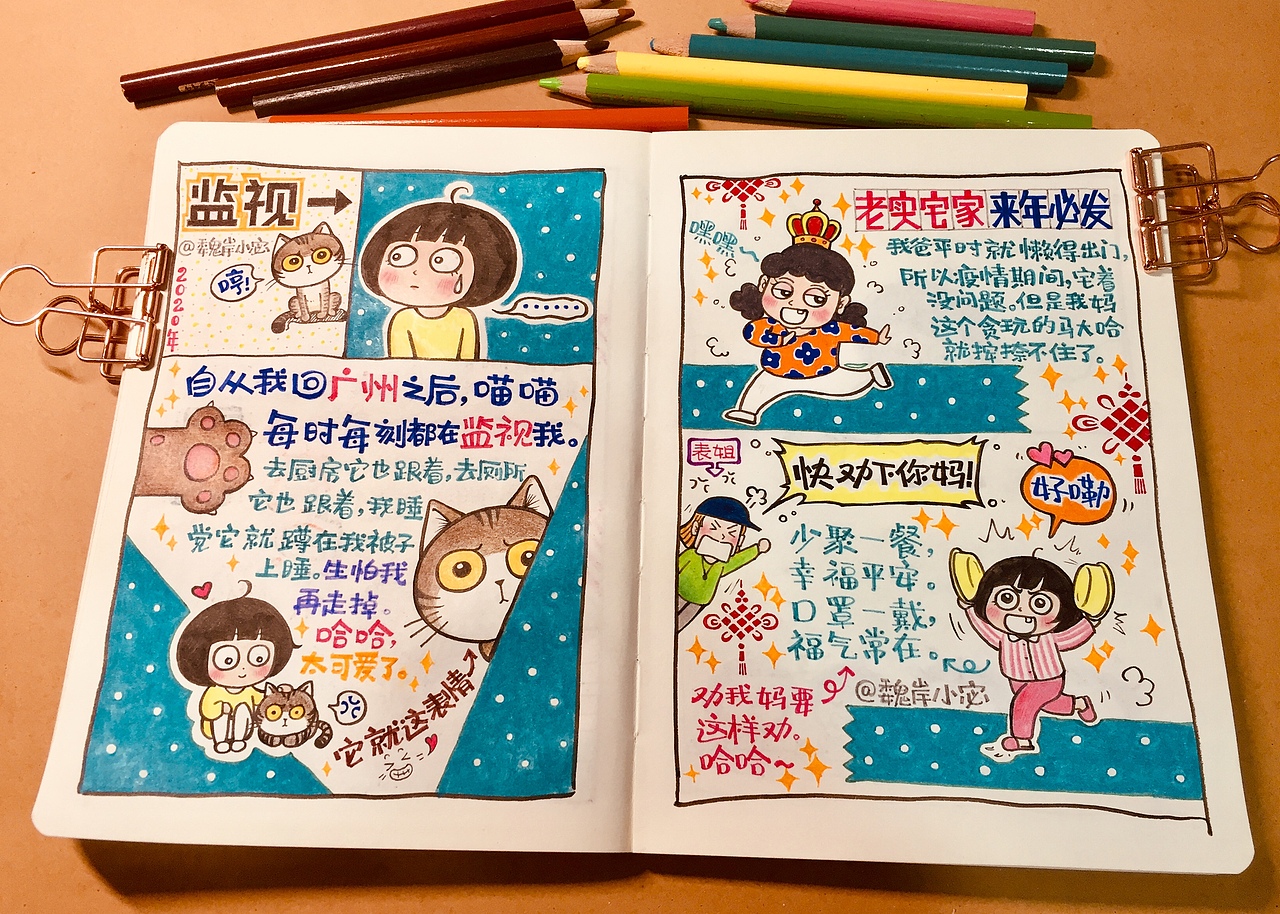 监视→
@魏岸小宓
哼!
2020年
自从我回广州之后,喵喵
每时每刻都在监视我。
去厨房它也跟着,去厕所
它也跟着,我睡
觉它就蹲在我被子
上睡。生怕我
再走掉。
哈哈,
太可爱了。
它就这表情
嘿嘿~
老实宅家 来年必发
我爸平时就懒得出门,
所以疫情期间,宅着
没问题。但是我妈
这个贪玩的马大哈
就按捺不住了。
表姐
快劝下你妈!
好嘞
少聚一餐,
幸福平安。
口罩一戴,
福气常在。
@魏岸小宓
劝我妈要
这样劝。
哈哈~